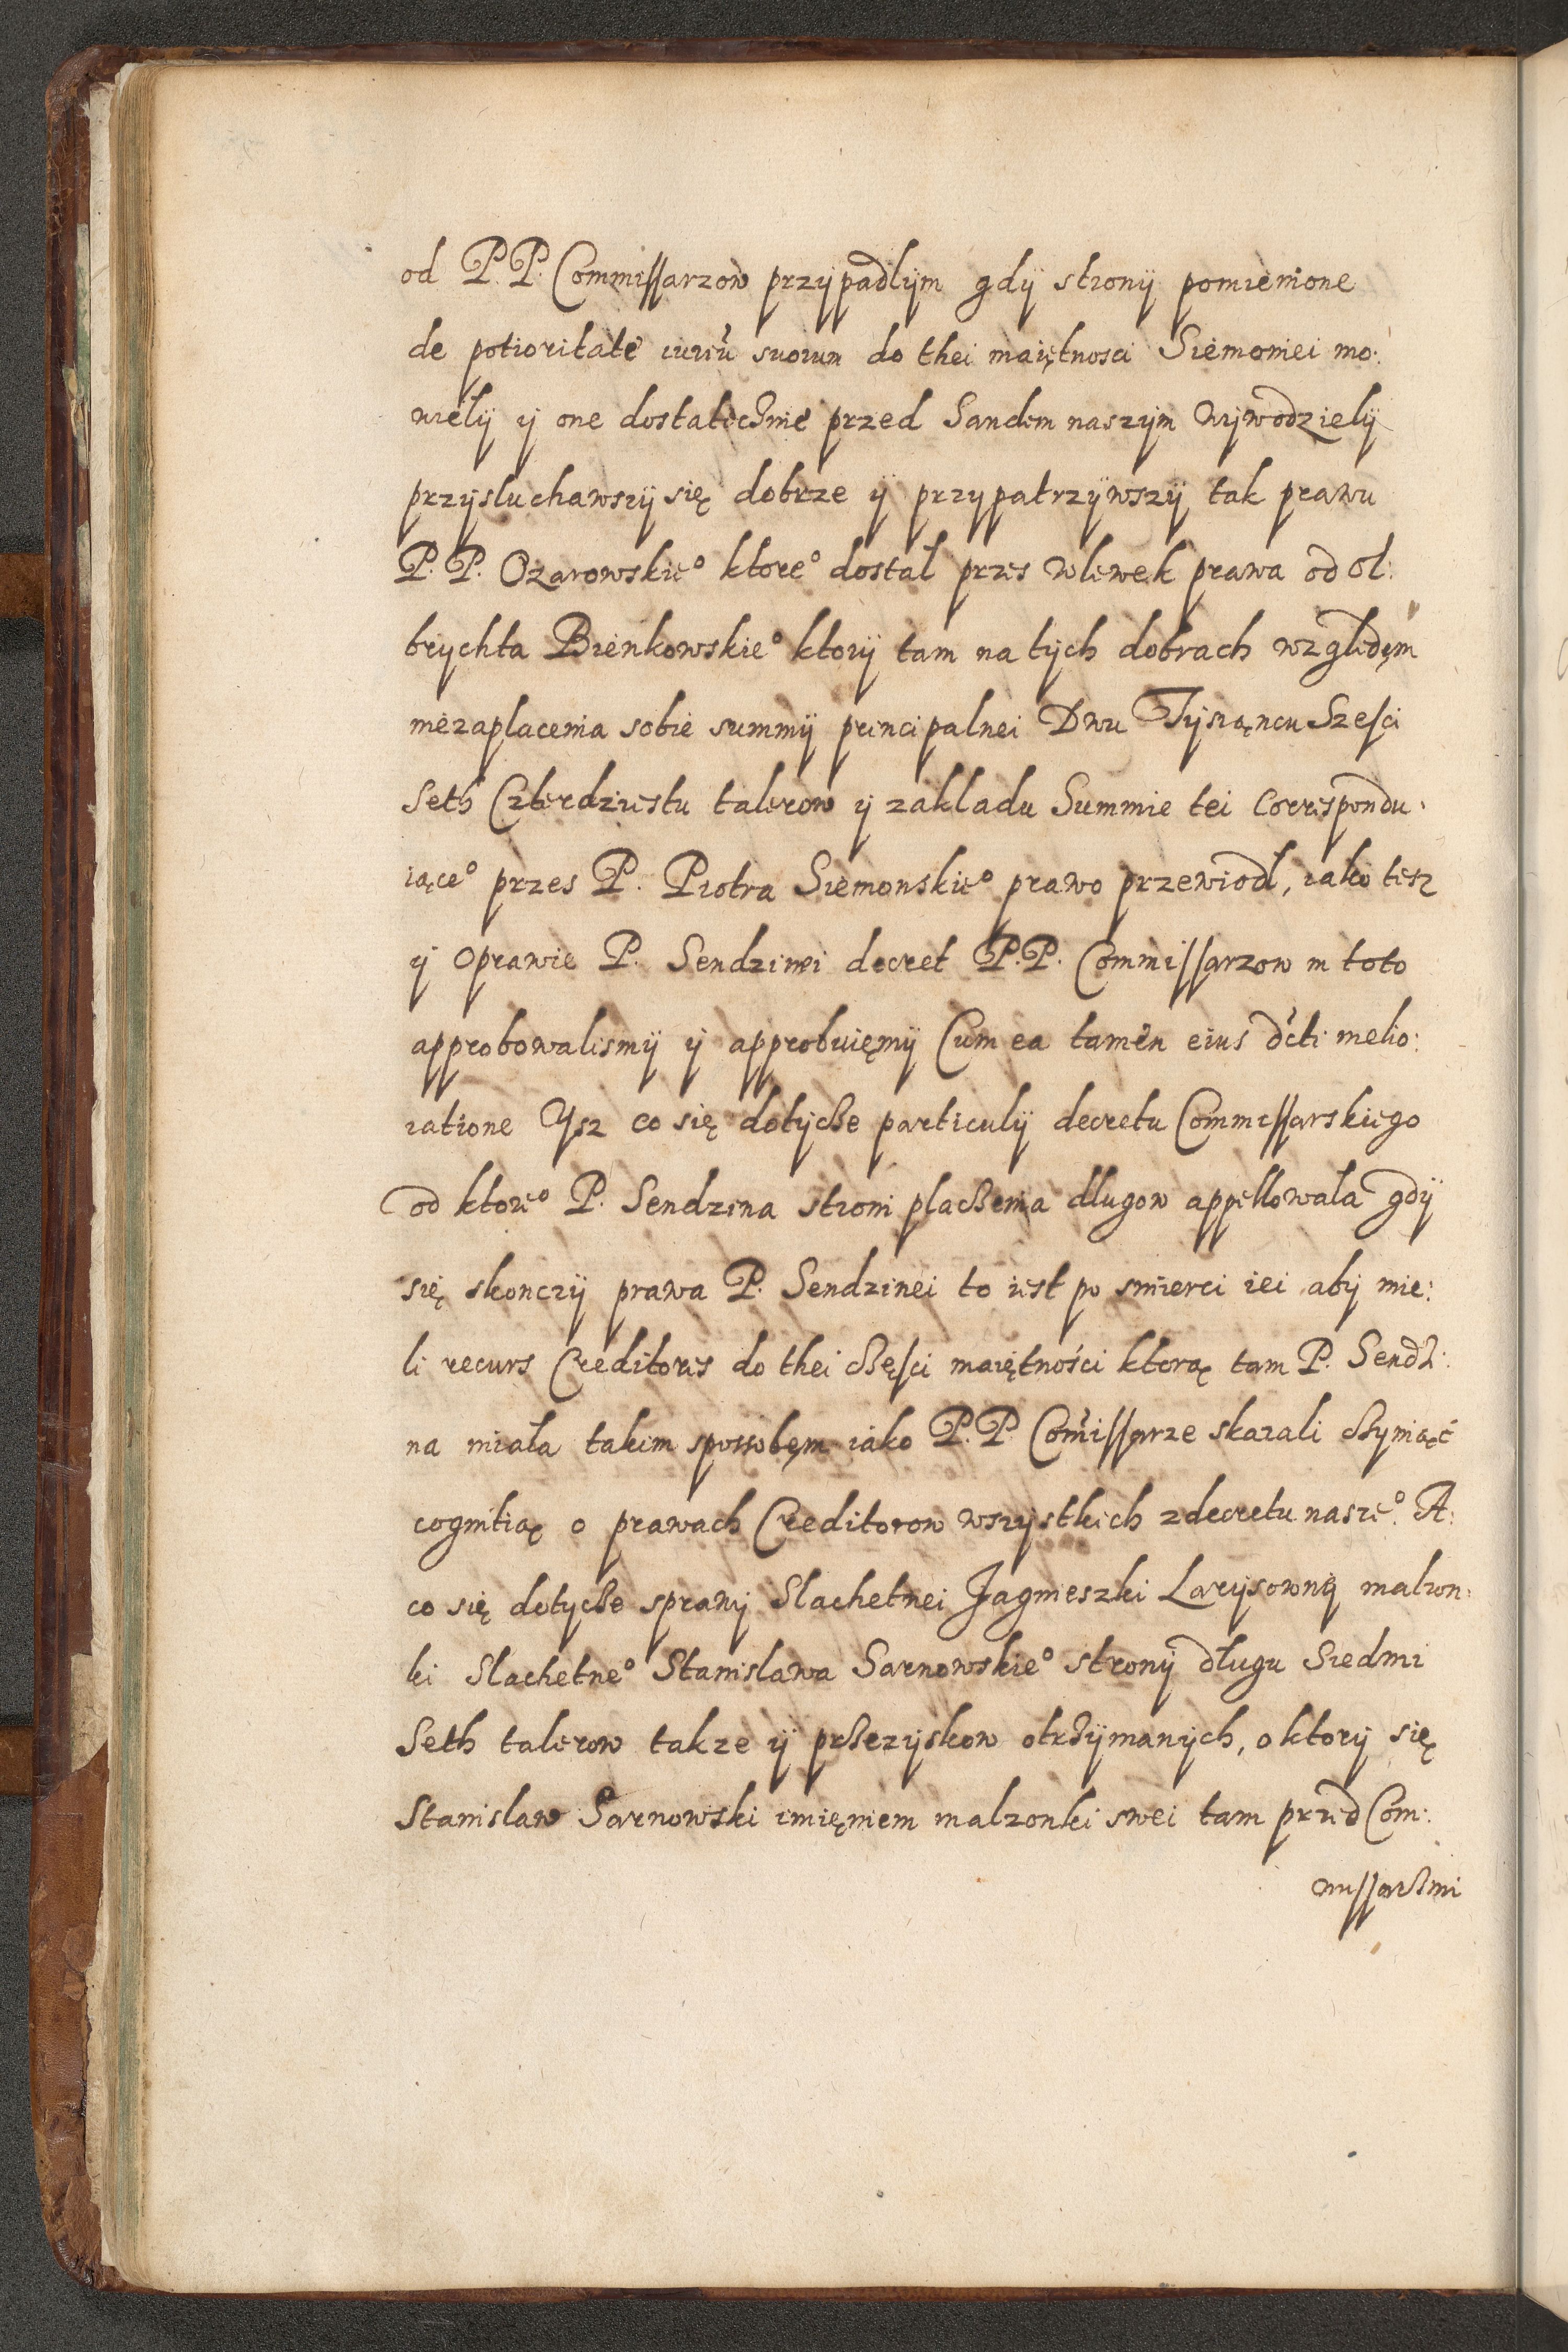 od P. P. Commissarzow przypadlym gdÿ stronÿ pomienione
de potioritate iuriū suorum do thei maiętnosci Siemoniei mo:
wielÿ ÿ one dostatecznie przed Sandem naszÿm wÿwodzielÿ
przysluchawszÿ się dobrze ÿ przypatrzÿwszÿ tak prawu
P. P. Ozarowskie° ktore° dostal przes wlewek prawa od Ol:
brychta Bienkowskie° ktorÿ tam na tÿch dobrach względęm
niezaplacenia sobie summÿ principalnei Dwu Tysiąncu Szesci
Seth Czterdziestu talerow ÿ zakladu Summie tei Correspondu:
iące° przes P. Piotra Siemonskie° prawo przewiodl, iako tesz
ÿ Oprawie P. Sendzinei decret P. P. Commissarzow in toto
approbowalismÿ ÿ approbuięmÿ Cum ea tamen eius dċti melio:
ratione Ysz co się dotycze particulÿ decretu Commissarskiego
od ktore° P. Sendzina stroni placzenia dlugow appellowala gdÿ
się skonczÿ prawa P. Sendzinei to iest po smierci iei aby mie:
li recurs Creditores do thei częsci maiętności ktorą tam P. Sendzi:
na miala takim sposobęm iako P. P. Com̃issarze skazali czyniąć
cognitią o prawach Creditorow wszystkich z decretu nasze°. A:
co się dotycze sprawÿ Slachetnei Jagnieszki Larysownÿ malzon:
ki Slachetne° Stanislawa Sarnowskie° stronÿ dlugu Siedmi
Seth talerow takze ÿ przezÿskow otrzÿmanÿch, o ktorÿ się
Stanislaw Sarnowski imięniem malzonki swei tam przed Com:
missarzmi